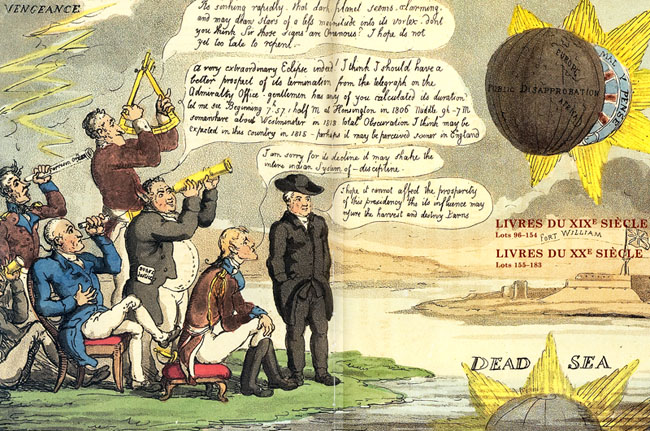 VENGEANCE
Its sinking rapidly. that dark planet seems alarming.
and may draw stars of a less magnitude into its vortex. dont
you think Sir those signs are Ominous? I hope its not
yet too late to repent-
a very extraordinary Eclipse indeed! I think I should have a
better prospect of its termination from the telegraph on the
Admiralty Office - gentlemen has any of you calculated its duration?
let me see Beginning 7h. 57. half M at Kensington in 1806 Middle 9h -7 M
somewhere about Westminster in 1813 total Obscuration I think may be
expected in this country in 1815 - perhaps it may be perceived sooner in England
I am sorry for its decline it may shake the
intire indian System of - discipline.
I hope it cannot affect the prosperity
of this presidency tho its influence may
injure the harvest and destroy Barns
EUROPE
PUBLIC DISAPPROBATION
ASIA
MAL Y PENSE
LIVRES DU XIXE SIÈCLE
Lots 96-154
FORT WILLIAM
LIVRES DU XXE SIÈCLE
Lots 155-183
DEAD SEA